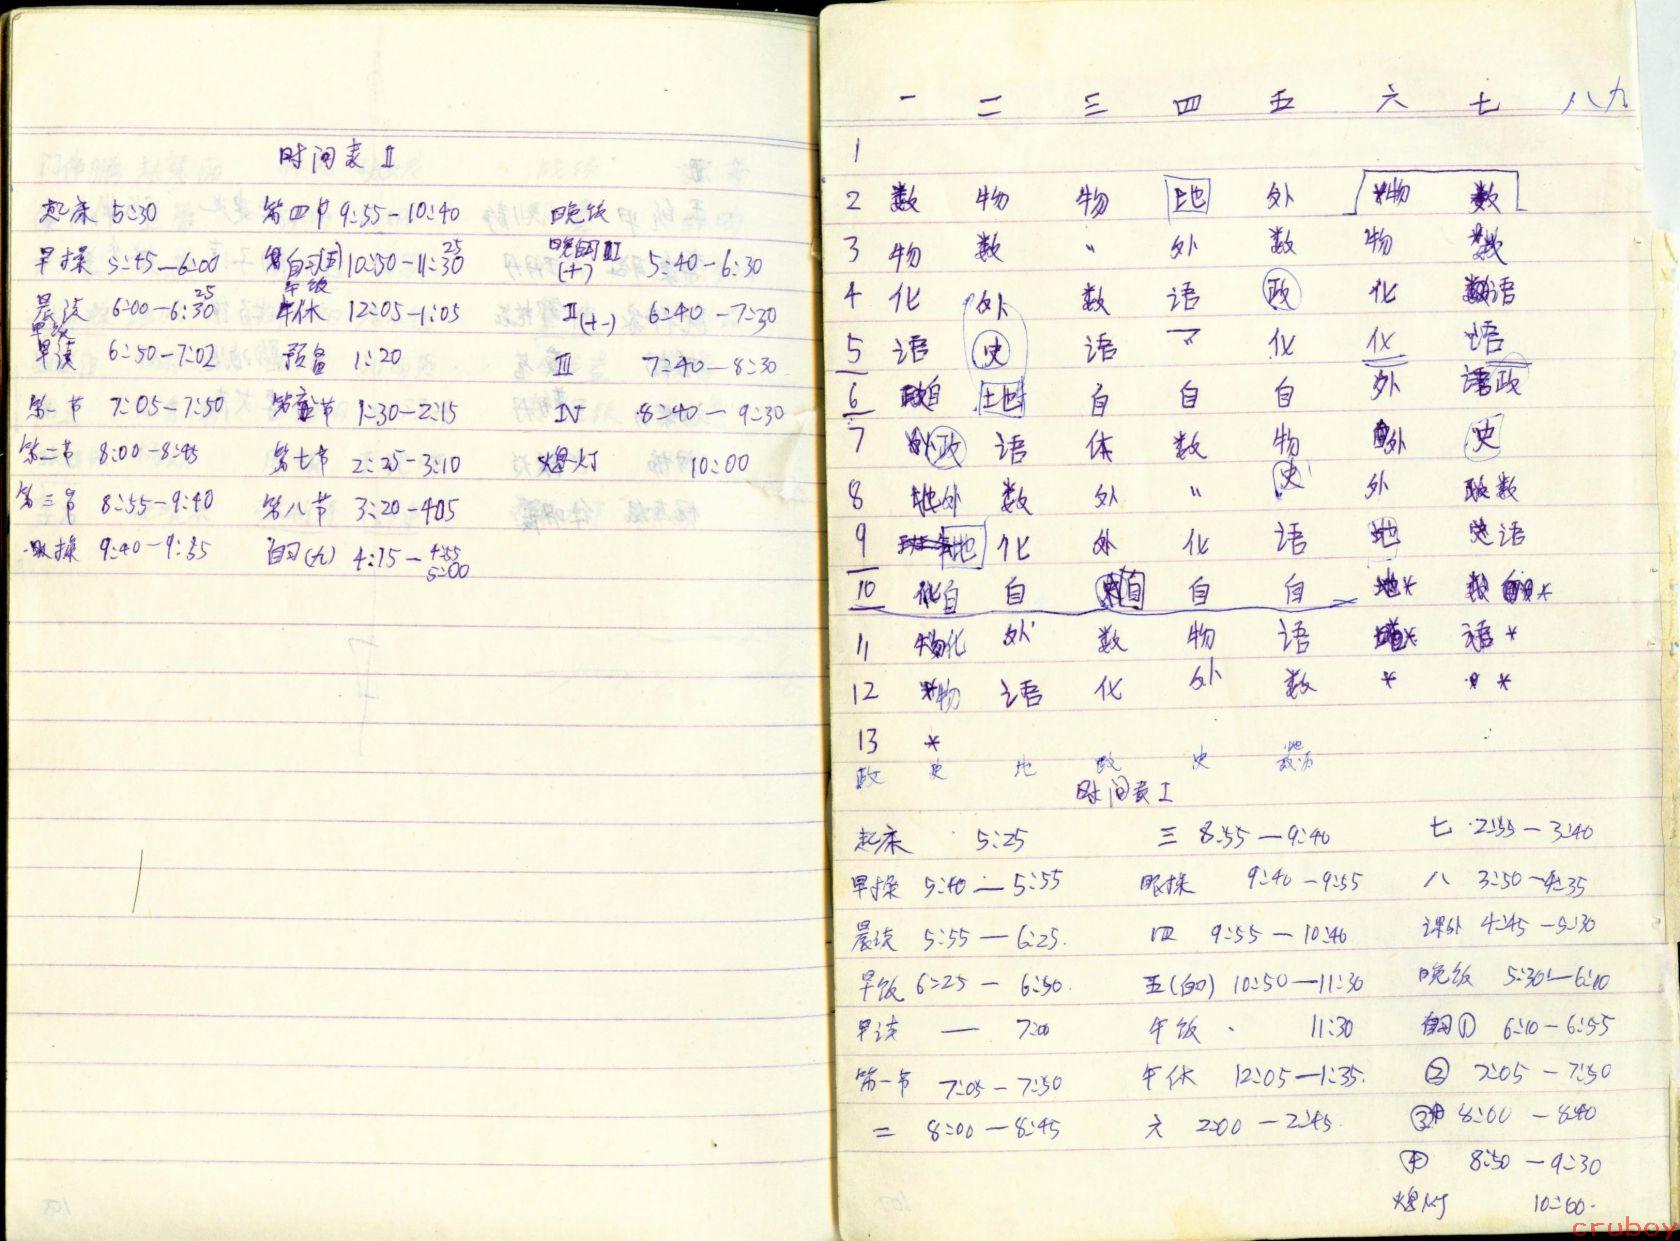 时间表 II
起床 5:30 第四节 9:55-10:40 晚饭
早操 5:45-6:00 自习(五) 10:50-11:30 25 5:40-6:30
晨读 6:00-6:30 25 午饭
午休 12:05-1:05 II (十一) 6:40-7:30
早饭
早读 6:50-7:02 预备 1:20 III 7:40-8:30
第一节 7:05-7:50 1:30-2:15 IV 8:40-9:30
第二节 8:00-8:45 第七节 2:25-3:10 熄灯 10:00
第三节 8:55-9:40 第八节 3:20-4:05
眼操 9:40-9:55 自习(九) 4:15-4:55
5:00
一 二 三 四 五 六 七 八 九
1
2 数 物 物 地 外 物 数
3 物 数 〃 外 数 物 数
4 化 外 数 语 政 化 语
5 语 史 语 化 化 语
6 自 地 自 自 自 外 政
7 政 语 体 数 物 外 史
8 外 数 外 〃 史 外 数
9 地 化 外 化 语 地 语
10 自 自 自 自 自 *
11 化 外 数 物 语 * 语 *
12 物 语 化 外 数 * * *
13 *
政 史 地 政 史
时间表 I
起床 5:25 三 8:55-9:40 七 2:55-3:40
早操 5:40-5:55 眼操 9:40-9:55 八 3:50-4:35
晨读 5:55-6:25 四 9:55-10:40 课外 4:45-5:30
早饭 6:25-6:50 五(自习) 10:50-11:30 晚饭 5:30-6:10
早读 — 7:00 午饭 11:30 自习① 6:10-6:55
第一节 7:05-7:50 午休 12:05-1:35 ② 7:05-7:50
二 8:00-8:45 六 2:00-2:45 ③ 8:00-8:40
④ 8:50-9:30
熄灯 10:00
cruboy